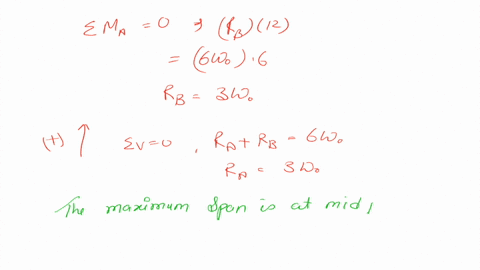 ΣM_A = 0 ⇒ (R_B)(12)
= (6W₀)·6
R_B = 3W₀
(+) ↑ ΣV=0, R_A + R_B = 6W₀
R_A = 3W₀
The maximum Span is at mid